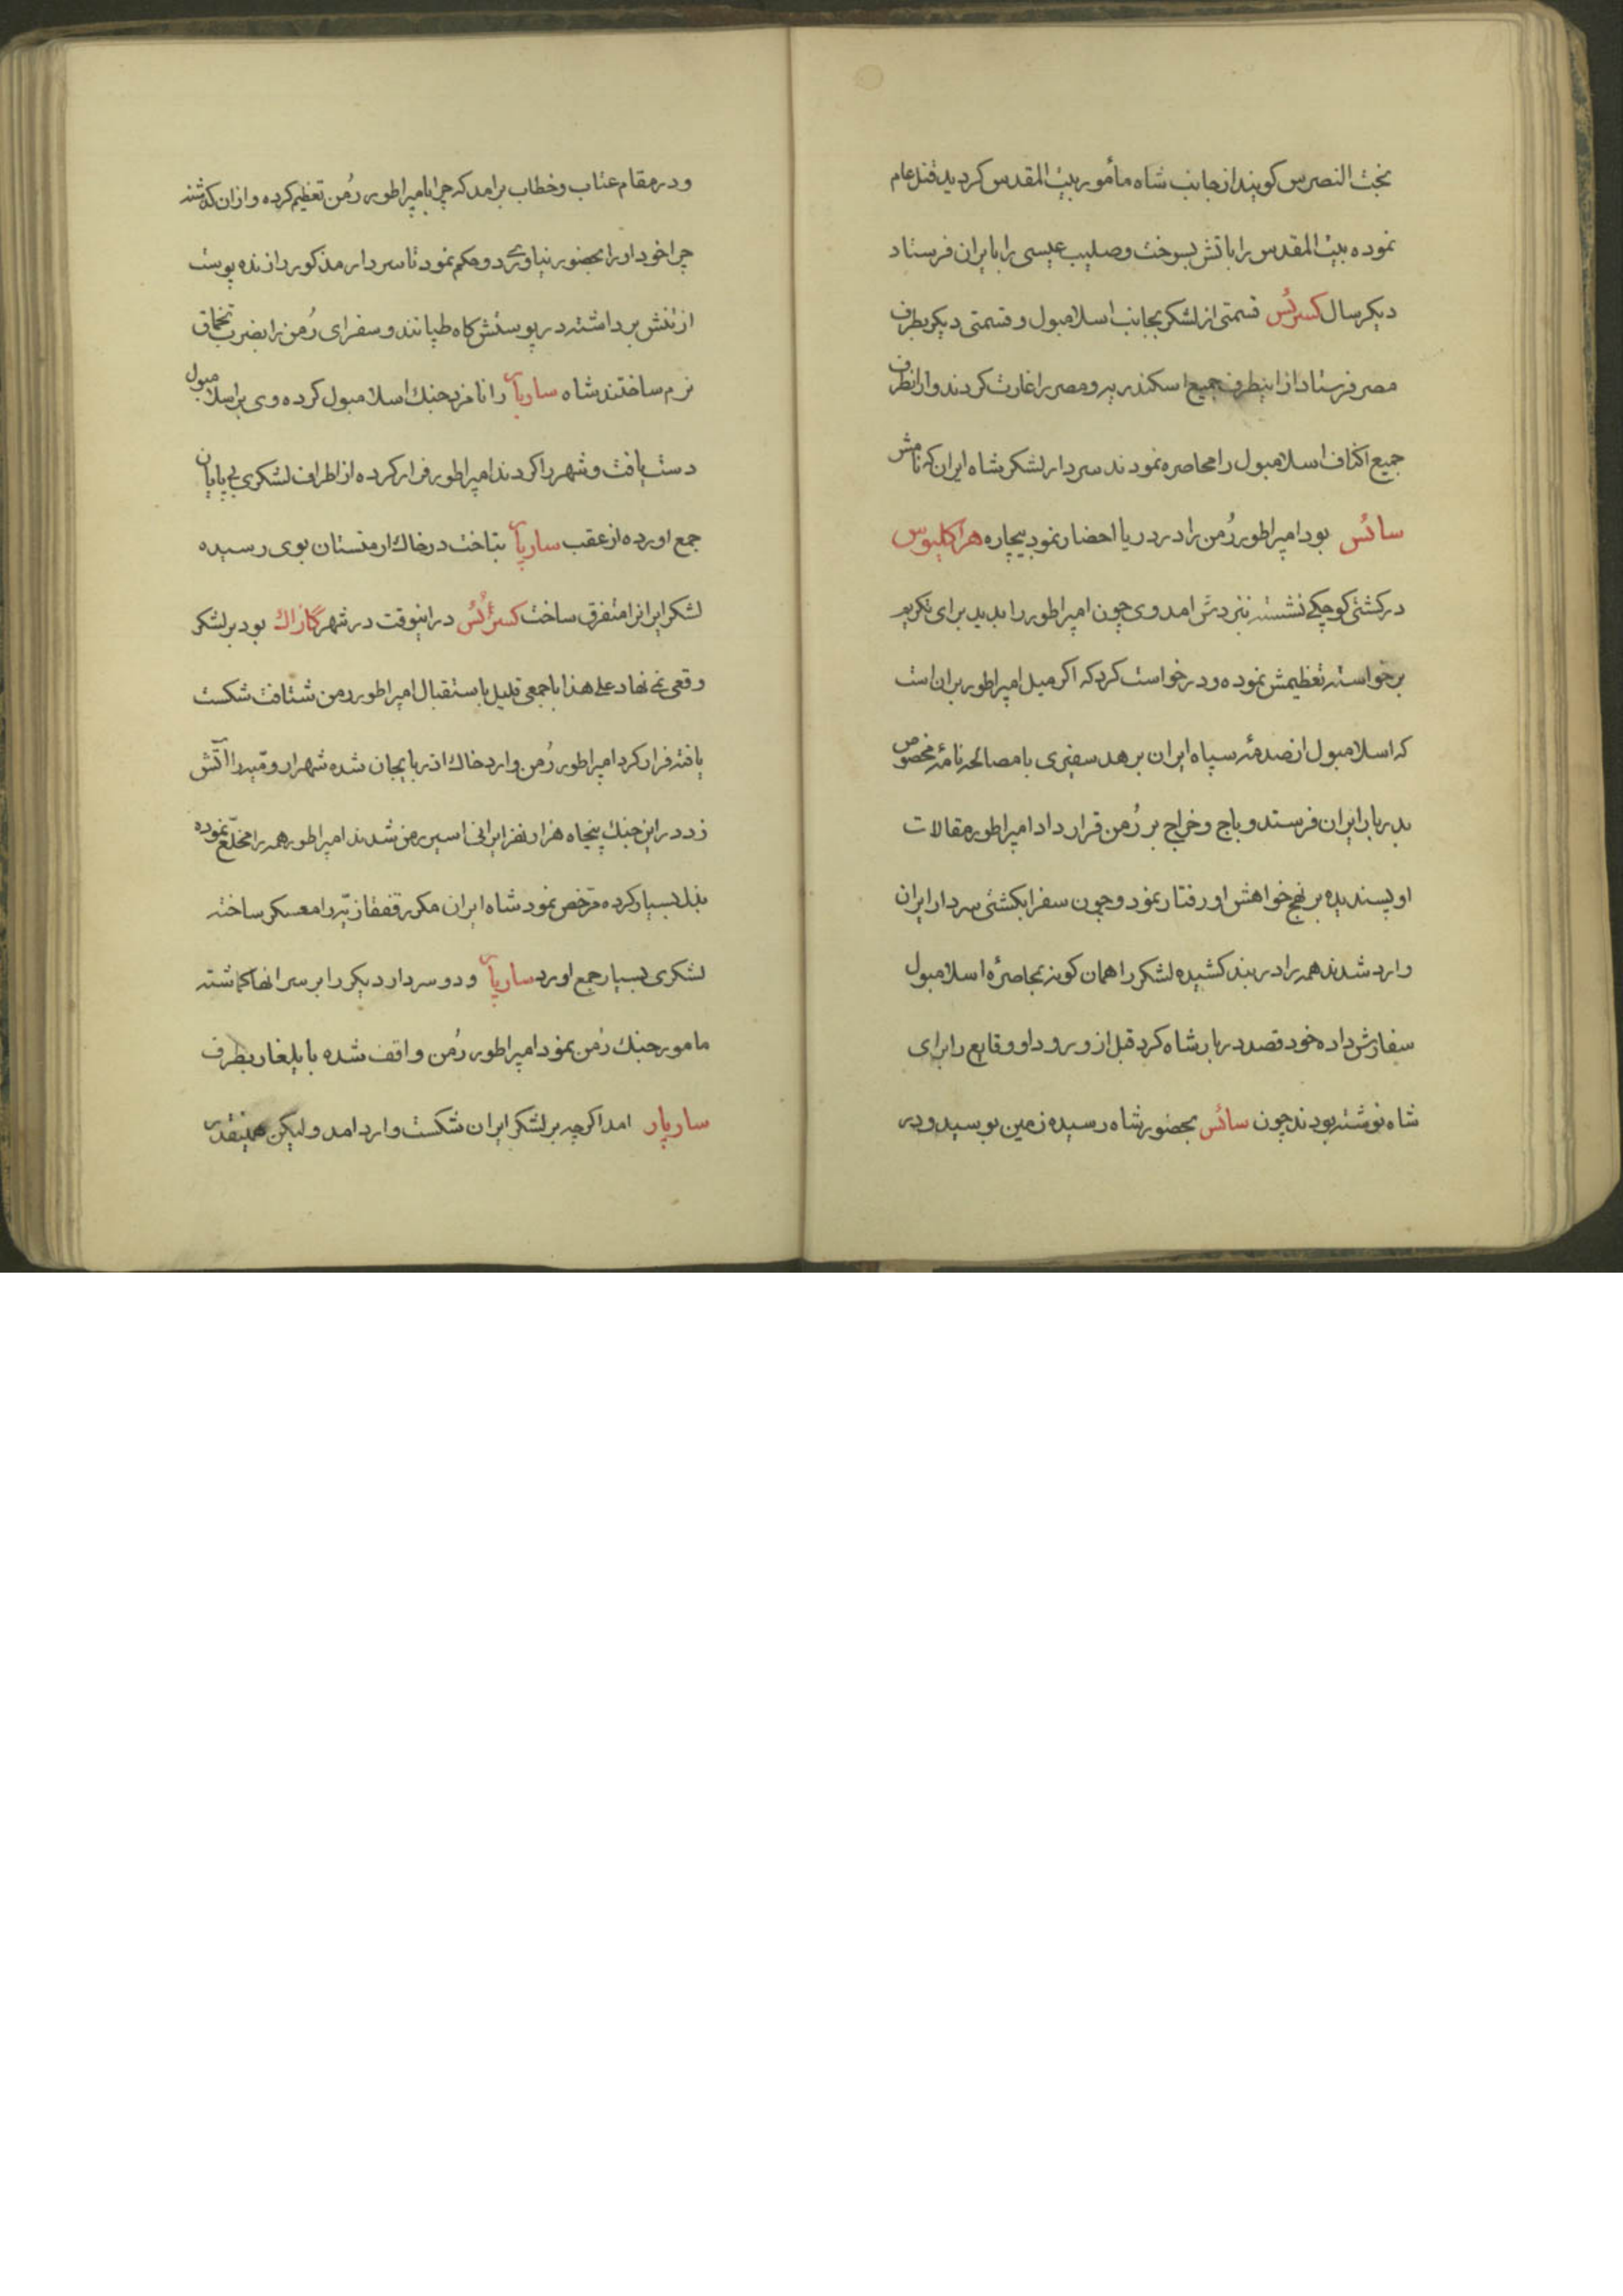 بخت النصرس کویند از جانب شاه مأمور بیت المقدس کردید قتل عام
نموده بیت المقدس را باتش بسوخت وصلیب عیسی را بایران فرستاد
دیکر سال کسرئس قسمتی از لشکر بجانب اسلامبول و قسمتی دیکر بطرف
مصر فرستاد از اینطرف جمیع اسکندریه و مصر را غارت کردند و ازانطرف
جمیع اکناف اسلامبول را محاصره نمودند سردار لشکر شاه ایران که نامش
سائس بود امپراطور رُمن را در دریا احضار نمود بیچاره هراکلیوس
در کشتی کوچکے نشسته نزدش امد وی چون امپراطور را بدید برای تکریم
برخواسته تعظیمش نموده و درخواست کرد که اکر میل امپراطور بران است
که اسلامبول از صدمهٔ سپاه ایران برهد سفیری با مصالحه نامهٔ مخصوص
بدربار ایران فرستد و باج و خراج بر رُمن قرار داد امپراطور مقالات
او پسندیده بر نهج خواهش او رفتار نمود و چون سفرا بکشتی سردار ایران
وارد شدند همه را در بند کشیده لشکر را همان کونه بمحاصرهٔ اسلامبول
سفارش داده خود قصد دربار شاه کرد قبل از ورود او وقایع را برای
شاه نوشته بودند چون سائس بحضور شاه رسیده زمین بوسید و در
ودر مقام عتاب و خطاب برامد که چرا بامپراطور رُمن تعظیم کرده و ازان کذشته
چرا خود او را بحضور نیاوردے و حکم نمود تا سردار مذکور را زنده پوست
از تنش برداشته در پوستش کاه طپانند و سفرای رُمن را بضرب تخماق
نرم ساختند شاه سارپار را نامزد جنك اسلامبول کرده وی بر اسلامبول
دست یافت و شهر را کردند امپراطور فرار کرده از اطراف لشکری بی پایان
جمع اورده از عقب سارپار بتاخت در خاك ارمنستان بوی رسیده
لشکر ایرانرا متفرق ساخت کسرئس دراینوقت در شهر کازاك بود بر لشکر
وقعی نمی نهاد علی هذا با جمعی قلیل باستقبال امپراطور رمن شتافت شکست
یافته فرار کرد امپراطور رُمن وارد خاك اذربایجان شده شهر ارومیّه را آتش
زد در این جنك پنجاه هزار نفر ایرانی اسیر رمن شدند امپراطور همه را مخلّع نموده
بذل بسیار کرده مرّخص نمود شاه ایران مکرر قفقازیّه را معسکر ساخته
لشکری بسیار جمع اورد سارپار و دو سردار دیکر را بر سر انها کماشته
مامور جنك رُمن نمود امپراطور رُمن واقف شده بایلغار بطرف
سارپار امد اکرچه بر لشکر ایران شکست وارد امد و لیکن